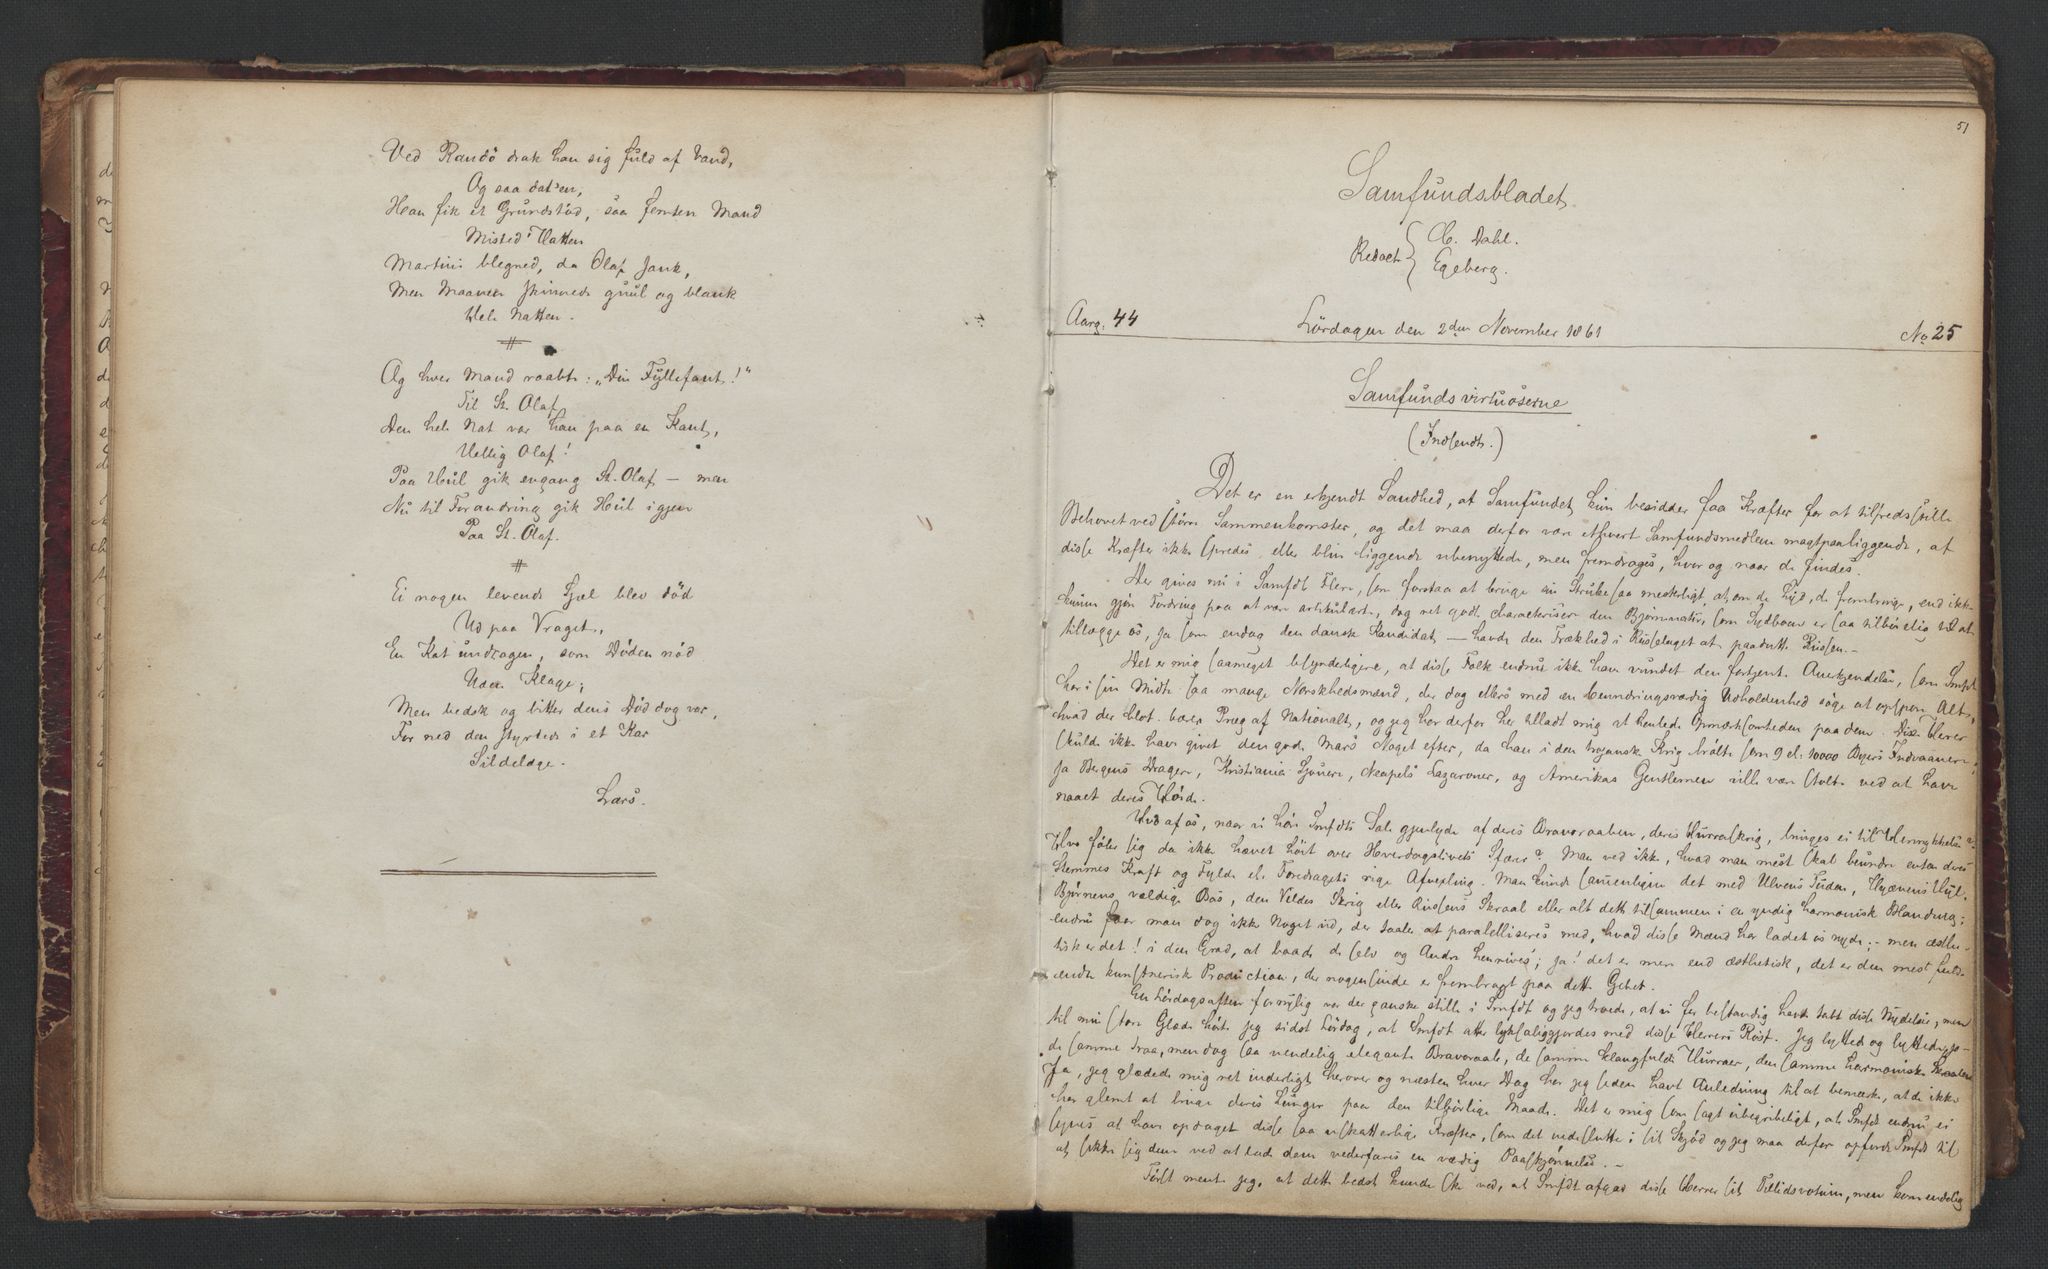 Ved Randö drak han sig fuld af Vand,
Og saa dat'en,
Han fik et Grundstöd, saa femten Mand
Misted' Hatten
Martini blegned, da Olaf sank,
Men Maanen skinnede guul og blank
Hele Natten.
Og hver Mand raabte: „Din Fyllefant!"
Til St. Olaf
Den hele Nat var han paa en Kant,
Hellig Olaf!
Paa Huul gik engang St. Olaf — men
Nu til Forandring gik Huul igjen
Paa St. Olaf.
Ei nogen levende Sjæl blev död
Ud paa Vraget,
En Kat undtagen, som Döden nöd
Uden Klage;
Men besk og bitter dens Död dog var,
For ned den styrtede i et Kar
Sildelage.
Lars.
51
Samfundsbladet
Redact { C. Dahl.
Egeberg.
Aarg: 44 Lördagen den 2den November 1861 No 25
Samfundsvirtuoserne
(Indsendt.)
Det er en erkjendt Sandhed, at Samfundet kun besidder faa Kræfter for at tilfredsstille
Behovet ved större Sammenkomster, og det maa derfor være ethvert Samfundsmedlem magtpaaliggende, at
disse Kræfter ikke spredes eller blive liggende ubenyttede, men fremdrages, hvor og naar de findes.
Der gives nu i Samfdt Flere, som forstaa at bruge sin Strube saa mesterligt, at om de Lyd, de frembringe, end ikke
kunne gjöre Fordring paa at være artikulerte, dog ret godt characterisere den Björnnatur, som Sydboen er saa tilböielig til at
tillægge os, ja som endog den danske Kandidat — havde den Frækhed i Russelaget at paadutte Russen.—
Det er mig saameget besynderligere, at disse Folk endnu ikke have vundet den fortjente Anerkjendelse, som Smfdt
har i sin Midte saa mange Norskhedsmænd, der dog ellers med en beundringsværdig Udholdenhed söge at opspore Alt,
hvad der blot bærer Præg af Nationalt, og jeg har derfor her tilladt mig at henlede Opmærksomheden paa dem. Disse Herrer
skulde ikke have givet den gode Mars Noget efter, da han i den trojanske Krig brölte som 9 el. 10000 Byers Indvaanere;
ja Bergens Dragere, Kristiania Sjouere, Neapels Lazaroner, og Amerikas Gentlemen ville være stolte ved at have
naaet deres Höide.
Hvo af os, naar vi höre Smfdts Sale gjenlyde af deres Bravoraaben, deres Hurraskrig, bringes ei til Henrykkelse?
Hvo föler sig da ikke hævet höit over Hverdagslivets Sfære? Man ved ikke, hvad man mest skal beundre enten deres
Stemmes Kraft og Fylde ell. Foredragets rige Afvexling. Man kunde sammenligne det med Ulvens Tuden, Hyænens Hyl,
Björnens vældige Bas, den Vildes Skrig eller Russens Skraal eller alt dette tilsammen i en yndig harmonisk Blanding;
endnu faar man dog ikke Noget ud, der taaler at paralelliseres med, hvad disse Mænd har ladet os nyde;— men æsthe-
tisk er det! i den Grad, at baade de selv og Andre henrives; ja! det er mere end æsthetisk, det er den mest fuld-
endte kunstneriske Production, der nogensinde er frembragt paa dette Gebet.
En Lördagsaften fornylig var der ganske stille i Smfdt og jeg troede, at vi for bestandig havde tabt disse Nydelser, men
til min store Glæde hörte jeg sidst Lördag, at Smfdt atter lyksaliggjordes med disse Herrers Röst. Jeg lyttede og lyttede, jo —
de samme raa, men dog saa uendelig elegante Bravoraab, de samme klangfulde Hurraer, den samme harmoniske Skraalen.
Ja, jeg glædede mig ret inderligt herover og næsten hver Dag har jeg siden havt Anledning til at bemærke, at de ikke
har glemt at bruge deres Lunger paa den tilbörlige Maade. Det er mig som sagt ubegribeligt, at Smfdt endnu ei
synes at have opdaget disse saa uskatterlige Kræfter, som det indeslutter i sit Skjöd og jeg maa derfor opfordre Smfdt til
at sikkre sig dem ved at lade dem vederfares en værdig Paaskjönnelse.—
Först mente jeg, at dette bedst kunde ske ved, at Smfdt afgav disse Herrer sit Tillidsvotum, men kom endelig